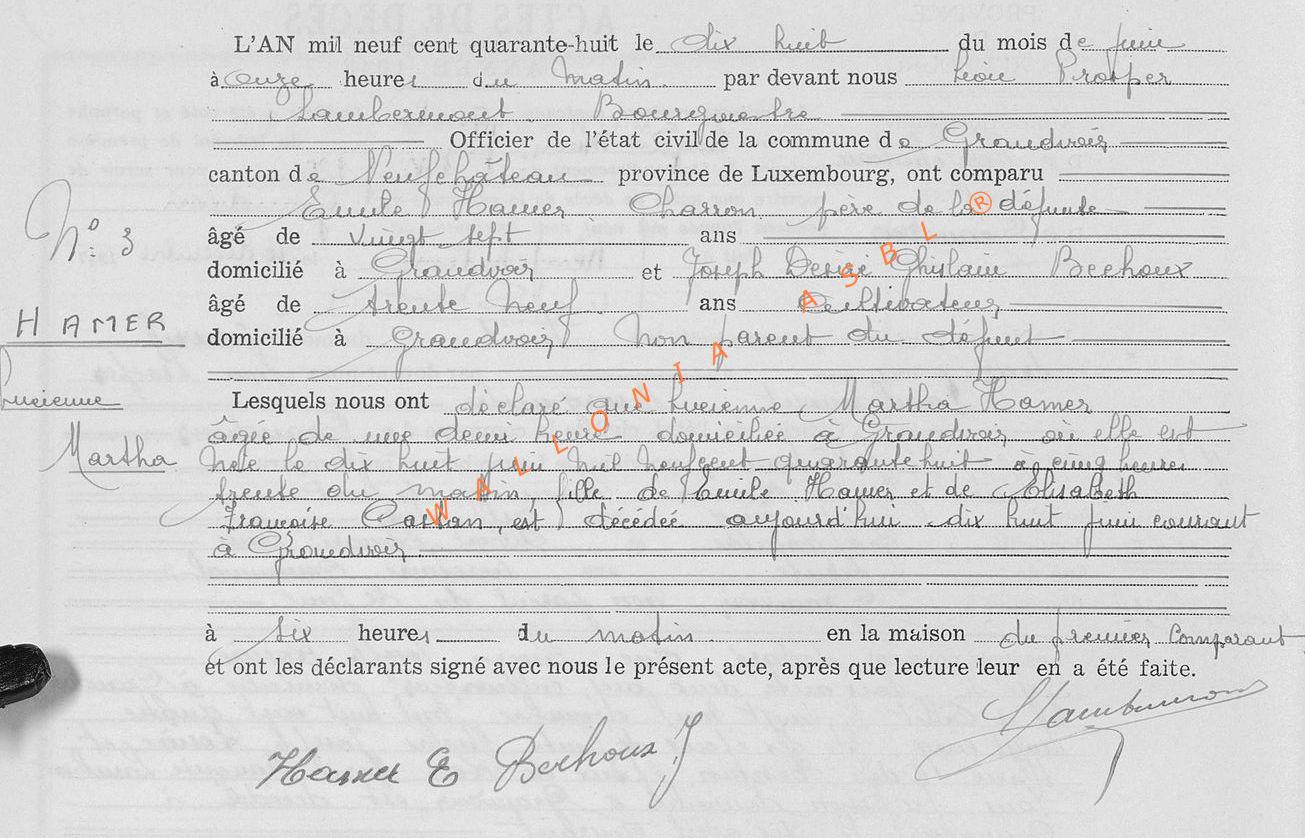 L'AN mil neuf cent quarante-huit le dix huit du mois de juin
à onze heures du Matin par devant nous Léon Prosper
Lambermont Bourgmestre
Officier de l'état civil de la commune de Grandvoir
canton de Neufchâteau province de Luxembourg, ont comparu
Emile Hamer Charron père de la défunte
N° 3
âgé de vingt sept ans
domicilié à Grandvoir et Joseph Désiré Ghislain Berhoux
âgé de trente neuf ans Cultivateur
HAMER
domicilié à Grandvoir Non parent du défunt
Lucienne
Lesquels nous ont déclaré que Lucienne Martha Hamer
âgée de une demi heure domiciliée à Grandvoir où elle est
Martha
née le dix huit juin mil neuf cent quarante huit à cinq heures
trente du matin, fille de Emile Hamer et de Elisabeth
Françoise est décédée aujourd'hui dix huit juin courant
à Grandvoir
à six heures du matin en la maison du premier Comparant
et ont les déclarants signé avec nous le présent acte, après que lecture leur en a été faite.
Lambermont
Hamer E Berhoux J
WALLONIA ASBL ®